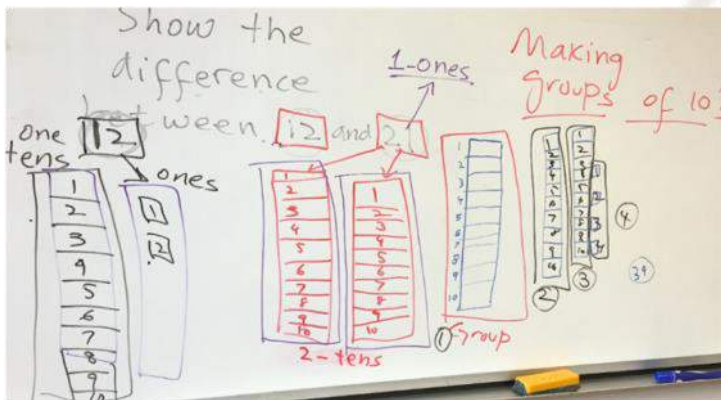 Show the
difference
between 12 and 21
1-ones
Making
groups of 10
12
one
tens
ones
1
2
3
4
5
6
7
8
9
1
2
1
2
3
4
5
6
7
8
9
10
2-tens
1
2
3
4
5
6
7
8
9
10
1
2
3
4
5
6
7
8
9
10
1 Group
1
2
3
4
5
6
7
8
9
10
2
1
2
3
4
5
6
7
8
9
10
3
1
2
3
4
4
34